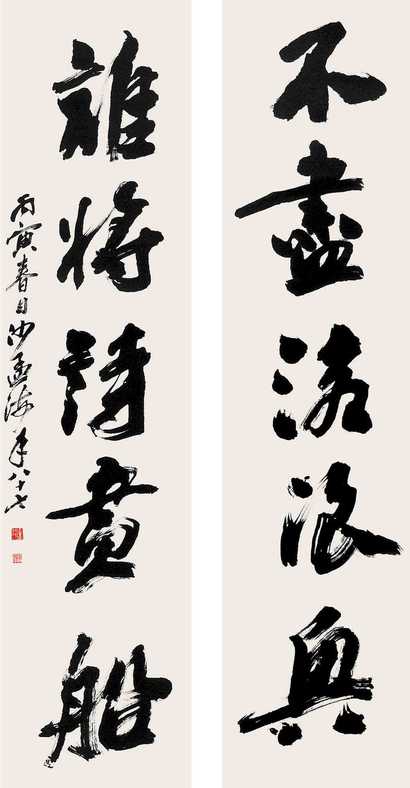 不盡滄浪興
誰將詩畫船
丙寅春日沙孟海年八十七